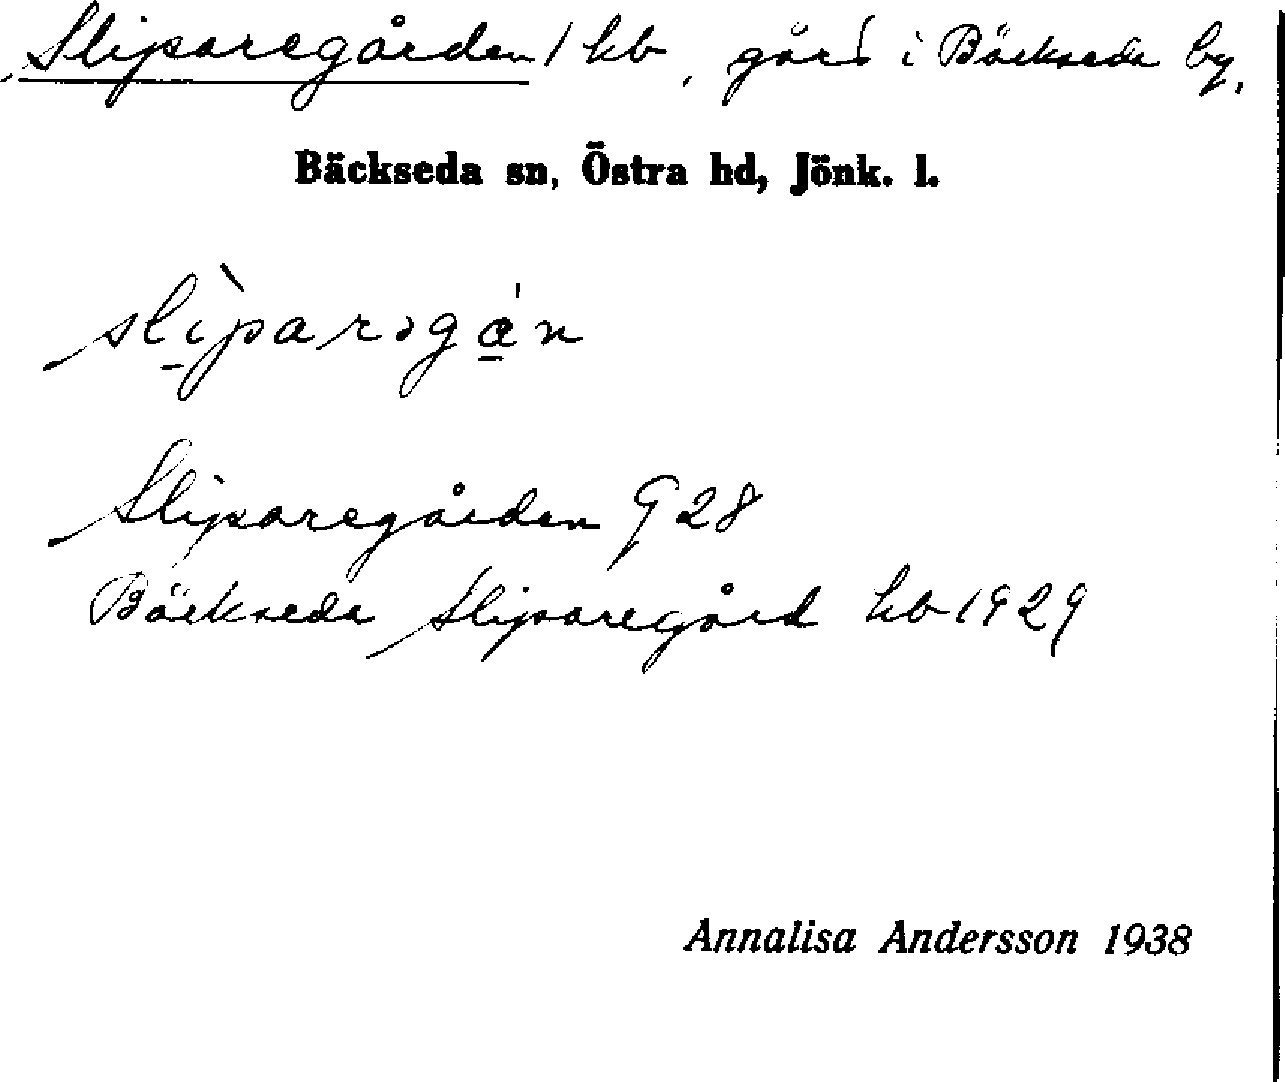 Sliparegården 1 hb, gård i Bäckseda by,
Bäckseda sn, Östra hd, Jönk. l.
slìparəgɑ́n
Sliparegården G 28
Bäckseda Sliparegård hb 1929
Annalisa Andersson 1938